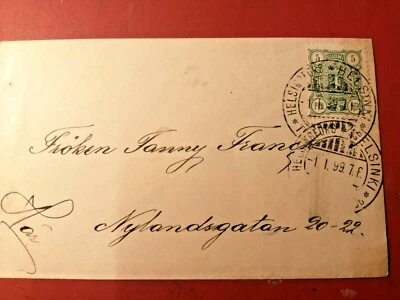 5 5
HELSINGFORS HELSINKI
HELSINKI
-1.1.99.7.F.
Fröken Fanny Franck
Här
Nylandsgatan 20-22.